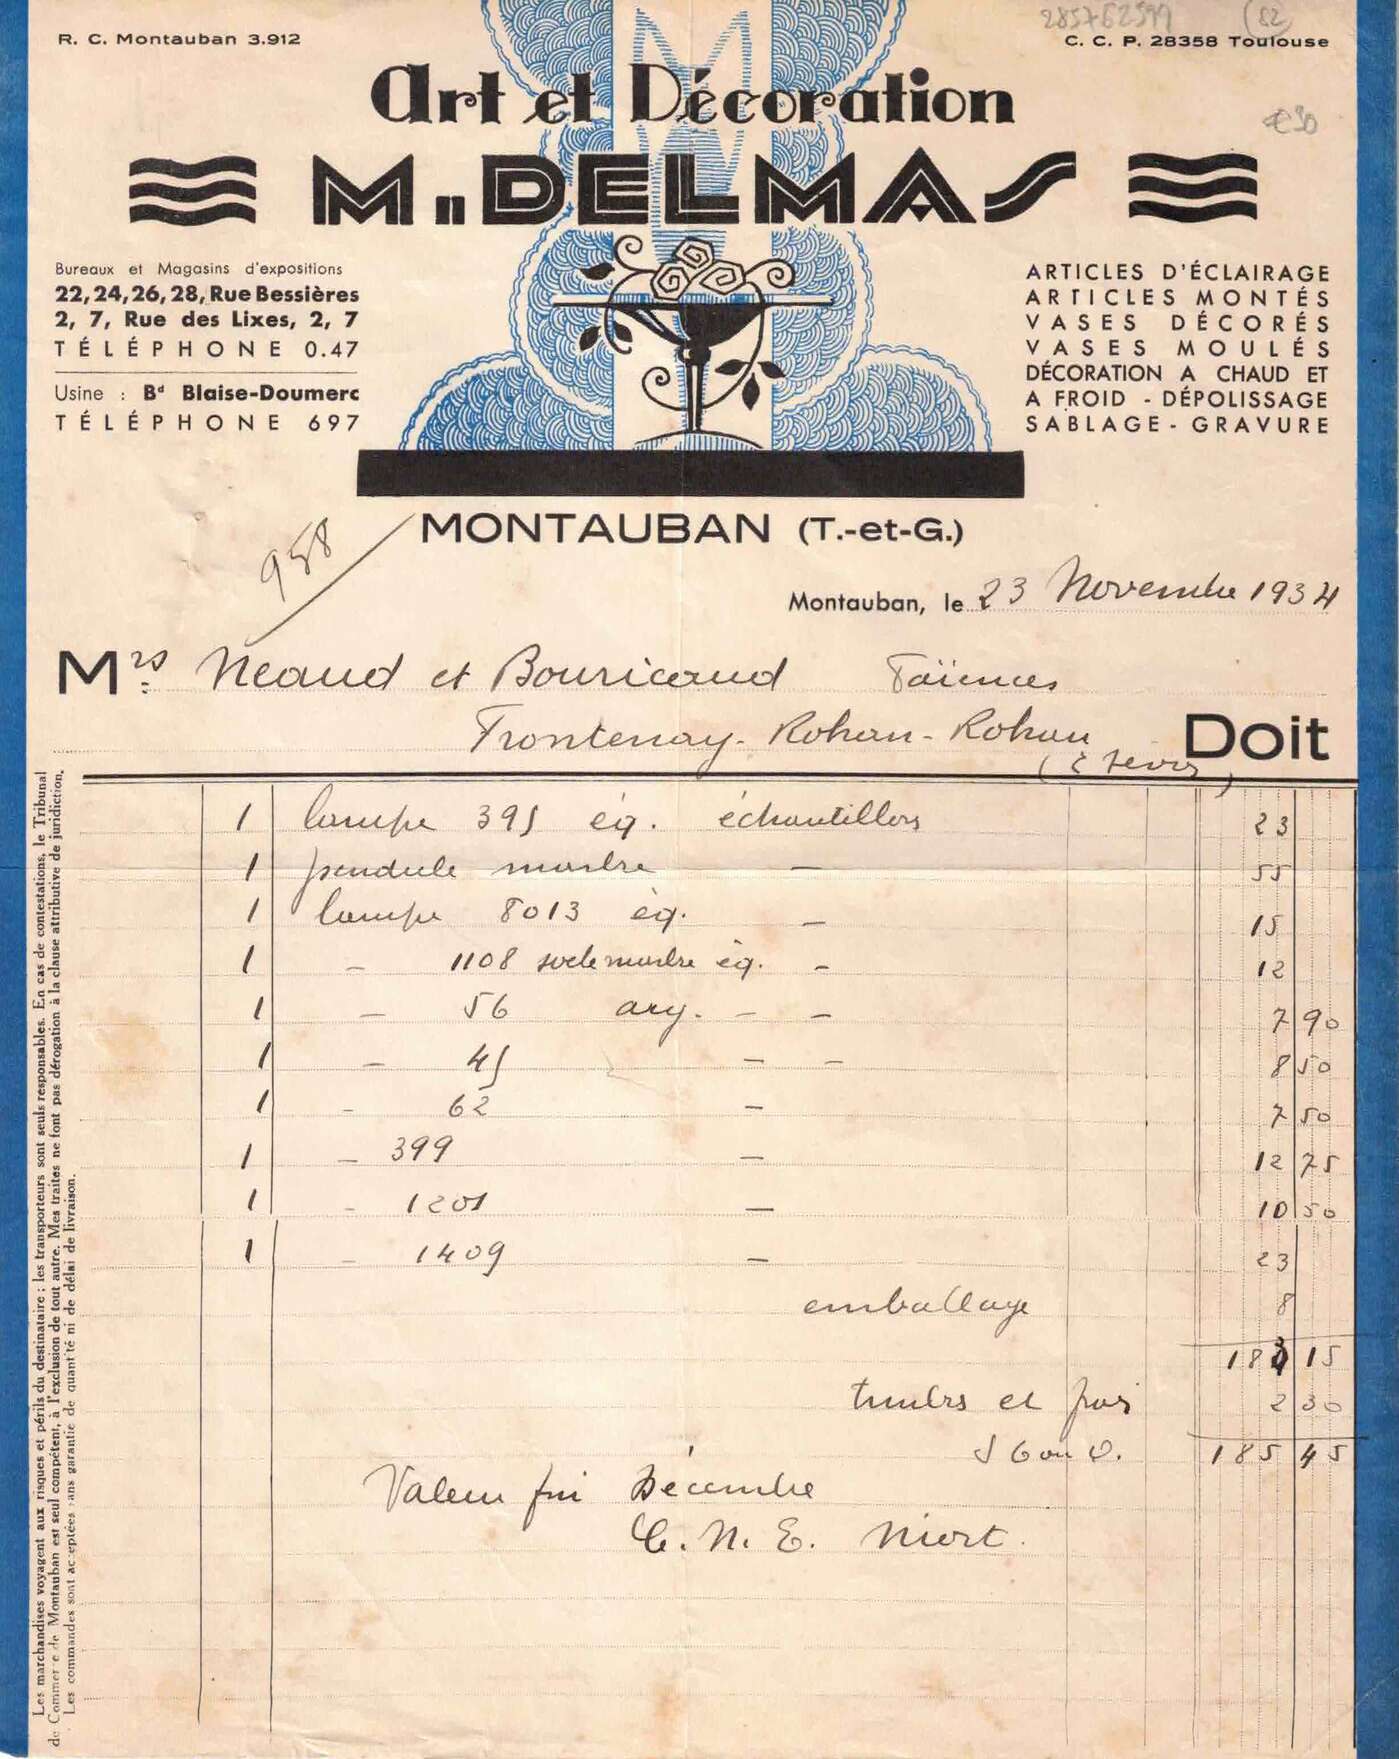 285762599 (82)
R. C. Montauban 3.912
C. C. P. 28358 Toulouse
Art et Décoration
€30
M. DELMAS
Bureaux et Magasins d'expositions
22, 24, 26, 28, Rue Bessières
2, 7, Rue des Lixes, 2, 7
TÉLÉPHONE 0.47
Usine : Bd Blaise-Doumerc
TÉLÉPHONE 697
ARTICLES D'ÉCLAIRAGE
ARTICLES MONTÉS
VASES DÉCORÉS
VASES MOULÉS
DÉCORATION A CHAUD ET
A FROID - DÉPOLISSAGE
SABLAGE - GRAVURE
MONTAUBAN (T.-et-G.)
958
Montauban, le 23 Novembre 1934
Mrs Neaud et Bouricaud Faïences
Frontenay-Rohan-Rohan
(2 Sevres)
Doit
1 lampe 395 éq. échantillons 23
1 pendule marbre — 55
1 lampe 8013 éq. — 15
1 — 1108 socle marbre éq. — 12
1 — 56 arg. — — 7 90
1 — 45 — — 8 50
1 — 62 — 7 50
1 — 399 — 12 75
1 — 1201 — 10 50
1 — 1409 — 23
emballage 8
183 15
timbrs et frais 2 30
185 45
Valeur fin Décembre
C. N. E. Niort.
Les marchandises voyagent aux risques et périls du destinataire ; les transporteurs sont seuls responsables. En cas de contestations, le Tribunal
de Commerce de Montauban est seul compétent, à l'exclusion de tout autre. Mes traites ne font pas dérogation à la clause attributive de juridiction.
Les commandes sont acceptées sans garantie de quantité ni de délai de livraison.